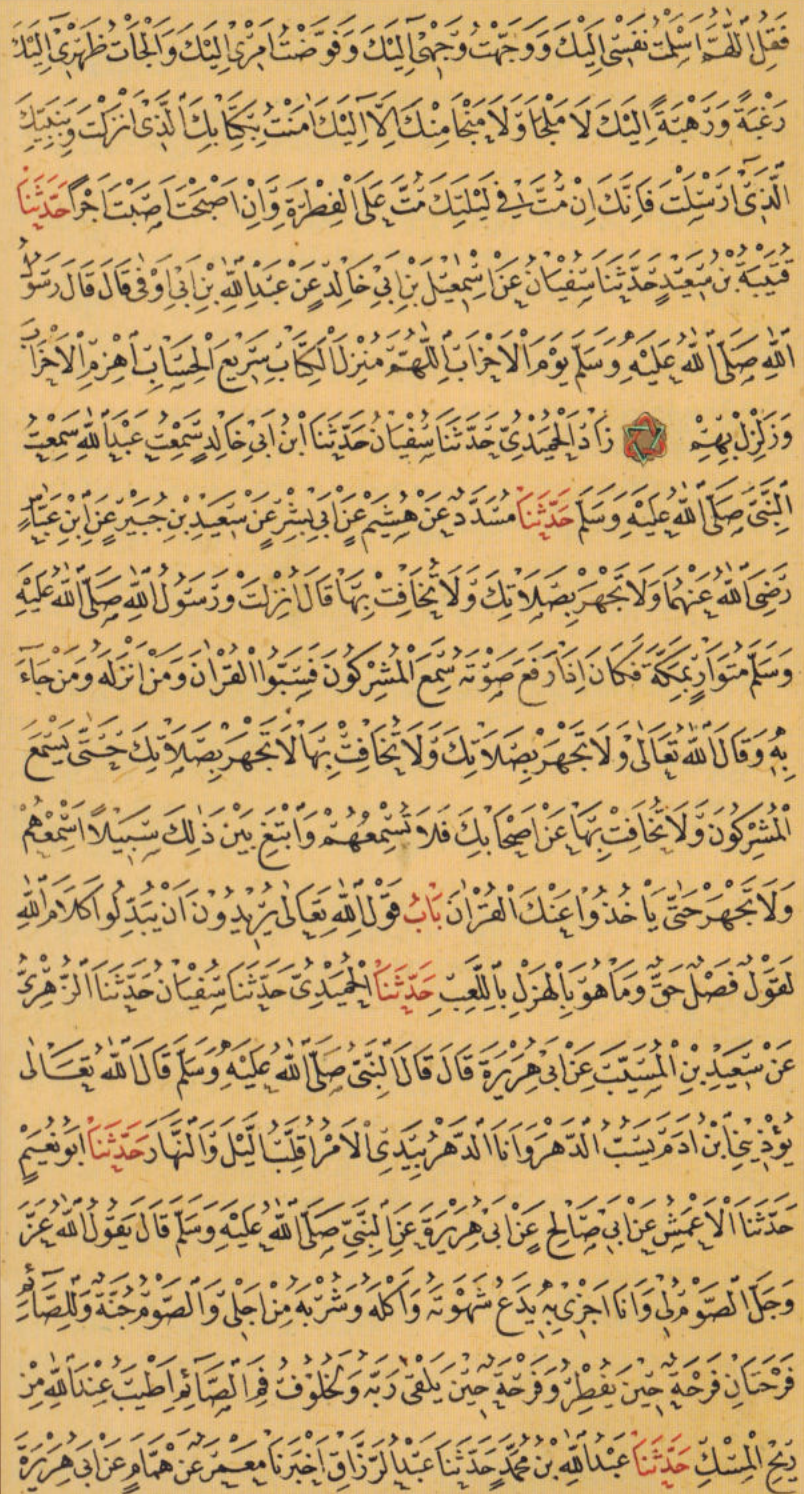 فَقُلِ اللّٰهُمَّ اَسْلَمْتُ نَفْسِىْ اِلَيْكَ وَوَجَّهْتُ وَجْهِىْ اِلَيْكَ وَفَوَّضْتُ اَمْرِىْ اِلَيْكَ وَاَلْجَاْتُ ظَهْرِىْ اِلَيْكَ
رَغْبَةً وَرَهْبَةً اِلَيْكَ لَا مَلْجَا وَلَا مَنْجَا مِنْكَ اِلَّا اِلَيْكَ اٰمَنْتُ بِكِتَابِكَ الَّذِىْ اَنْزَلْتَ وَنَبِيِّكَ
الَّذِىْ اَرْسَلْتَ فَاِنَّكَ اِنْ مُتَّ فِىْ لَيْلَتِكَ مُتَّ عَلَى الْفِطْرَةِ وَاِنْ اَصْبَحْتَ اَصَبْتَ اَجْرًا حَدَّثَنَا
قُتَيْبَةُ بْنُ سَعِيْدٍ حَدَّثَنَا سُفْيَانُ عَنْ اِسْمٰعِيْلَ بْنِ اَبِىْ خَالِدٍ عَنْ عَبْدِ اللّٰهِ بْنِ اَبِىْ اَوْفٰى قَالَ قَالَ رَسُوْلُ
اللّٰهِ صَلَّى اللّٰهُ عَلَيْهِ وَسَلَّمَ يَوْمَ الْاَحْزَابِ اَللّٰهُمَّ مُنْزِلَ الْكِتَابِ سَرِيْعَ الْحِسَابِ اَهْزِمِ الْاَحْزَابَ
وَزَلْزِلْ بِهِمْ زَادَ الْحُمَيْدِىُّ حَدَّثَنَا سُفْيَانُ حَدَّثَنَا ابْنُ اَبِىْ خَالِدٍ سَمِعْتُ عَبْدَ اللّٰهِ سَمِعْتُ
النَّبِىَّ صَلَّى اللّٰهُ عَلَيْهِ وَسَلَّمَ حَدَّثَنَا مُسَدَّدٌ عَنْ هُشَيْمٍ عَنْ اَبِىْ بِشْرٍ عَنْ سَعِيْدِ بْنِ جُبَيْرٍ عَنِ ابْنِ عَبَّاسٍ
رَضِىَ اللّٰهُ عَنْهُمَا وَلَا تَجْهَرْ بِصَلَاتِكَ وَلَا تُخَافِتْ بِهَا قَالَ اُنْزِلَتْ وَرَسُوْلُ اللّٰهِ صَلَّى اللّٰهُ عَلَيْهِ
وَسَلَّمَ مُتَوَارٍ بِمَكَّةَ فَكَانَ اِذَا رَفَعَ صَوْتَهُ سَمِعَ الْمُشْرِكُوْنَ فَسَبُّوا الْقُرْاٰنَ وَمَنْ اَنْزَلَهُ وَمَنْ جَاءَ
بِهِ وَقَالَ اللّٰهُ تَعَالٰى وَلَا تَجْهَرْ بِصَلَاتِكَ وَلَا تُخَافِتْ بِهَا لَا تَجْهَرْ بِصَلَاتِكَ حَتّٰى يَسْمَعَ
الْمُشْرِكُوْنَ وَلَا تُخَافِتْ بِهَا عَنْ اَصْحَابِكَ فَلَا تُسْمِعُهُمْ وَابْتَغِ بَيْنَ ذٰلِكَ سَبِيْلًا اَسْمِعْهُمْ
وَلَا تَجْهَرْ حَتّٰى يَاْخُذُوْا عَنْكَ الْقُرْاٰنَ بَابُ قَوْلِ اللّٰهِ تَعَالٰى يُرِيْدُوْنَ اَنْ يُبَدِّلُوْا كَلَامَ اللّٰهِ
لَقَوْلٌ فَصْلٌ حَقٌّ وَمَا هُوَ بِالْهَزْلِ بِاللَّعِبِ حَدَّثَنَا الْحُمَيْدِىُّ حَدَّثَنَا سُفْيَانُ حَدَّثَنَا الزُّهْرِىُّ
عَنْ سَعِيْدِ بْنِ الْمُسَيَّبِ عَنْ اَبِىْ هُرَيْرَةَ قَالَ قَالَ النَّبِىُّ صَلَّى اللّٰهُ عَلَيْهِ وَسَلَّمَ قَالَ اللّٰهُ تَعَالٰى
يُؤْذِيْنِى ابْنُ اٰدَمَ يَسُبُّ الدَّهْرَ وَاَنَا الدَّهْرُ بِيَدِى الْاَمْرُ اُقَلِّبُ اللَّيْلَ وَالنَّهَارَ حَدَّثَنَا اَبُوْ نُعَيْمٍ
حَدَّثَنَا الْاَعْمَشُ عَنْ اَبِىْ صَالِحٍ عَنْ اَبِىْ هُرَيْرَةَ عَنِ النَّبِىِّ صَلَّى اللّٰهُ عَلَيْهِ وَسَلَّمَ قَالَ يَقُوْلُ اللّٰهُ عَزَّ
وَجَلَّ الصَّوْمُ لِىْ وَاَنَا اَجْزِىْ بِهِ يَدَعُ شَهْوَتَهُ وَاَكْلَهُ وَشُرْبَهُ مِنْ اَجْلِىْ وَالصَّوْمُ جُنَّةٌ وَلِلصَّائِمِ
فَرْحَتَانِ فَرْحَةٌ حِيْنَ يُفْطِرُ وَفَرْحَةٌ حِيْنَ يَلْقٰى رَبَّهُ وَلَخُلُوْفُ فَمِ الصَّائِمِ اَطْيَبُ عِنْدَ اللّٰهِ مِنْ
رِيْحِ الْمِسْكِ حَدَّثَنَا عَبْدُ اللّٰهِ بْنُ مُحَمَّدٍ حَدَّثَنَا عَبْدُ الرَّزَّاقِ اَخْبَرَنَا مَعْمَرٌ عَنْ هَمَّامٍ عَنْ اَبِىْ هُرَيْرَةَ